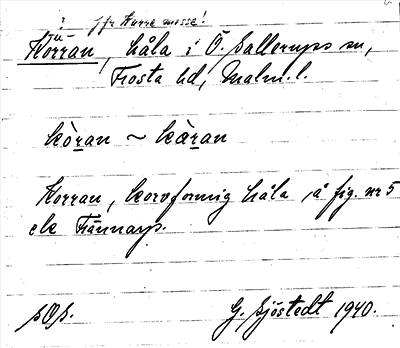 ? jfr Kurre mosse!
ü
Korran, håla i Ö. Sallerups sn,
Frosta hd, Malm. l.
kòran ~ kàran
Korran, korvformig håla på fig. nr 5
ek Tännarp.
sOs. G. Sjöstedt 1940.